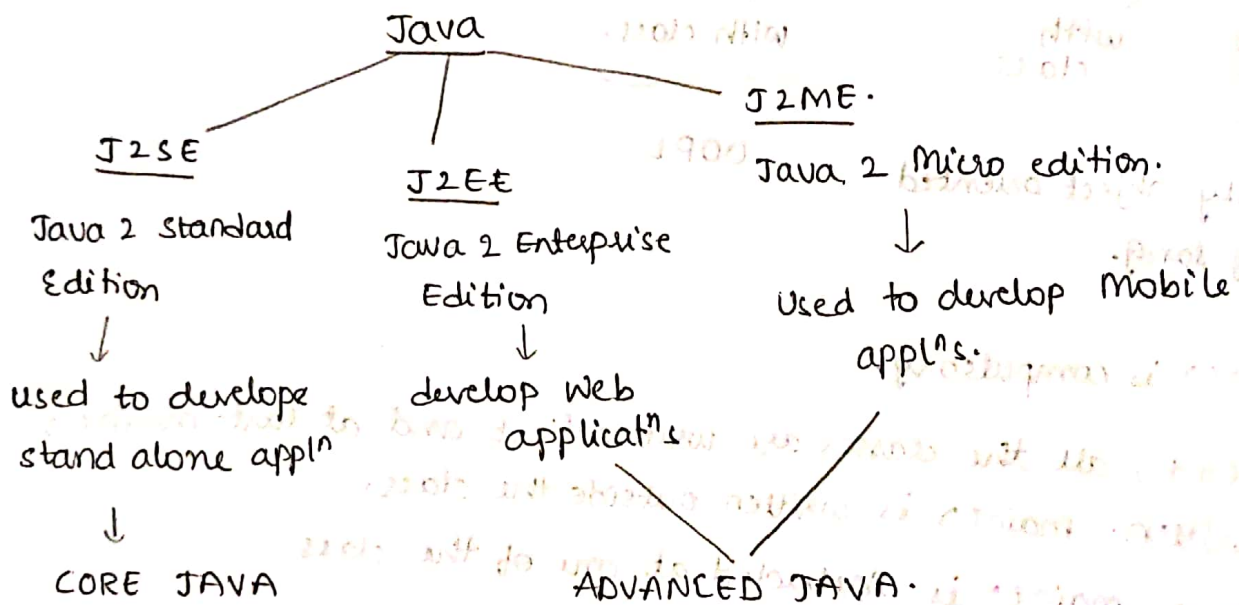 Java
J2SE
Java 2 Standard
Edition
↓
used to develope
stand alone applⁿ
↓
CORE JAVA
J2EE
Java 2 Enterprise
Edition
↓
develop web
applicatⁿs
J2ME.
Java 2 Micro edition.
↓
Used to develop Mobile
applⁿs.
ADVANCED JAVA.